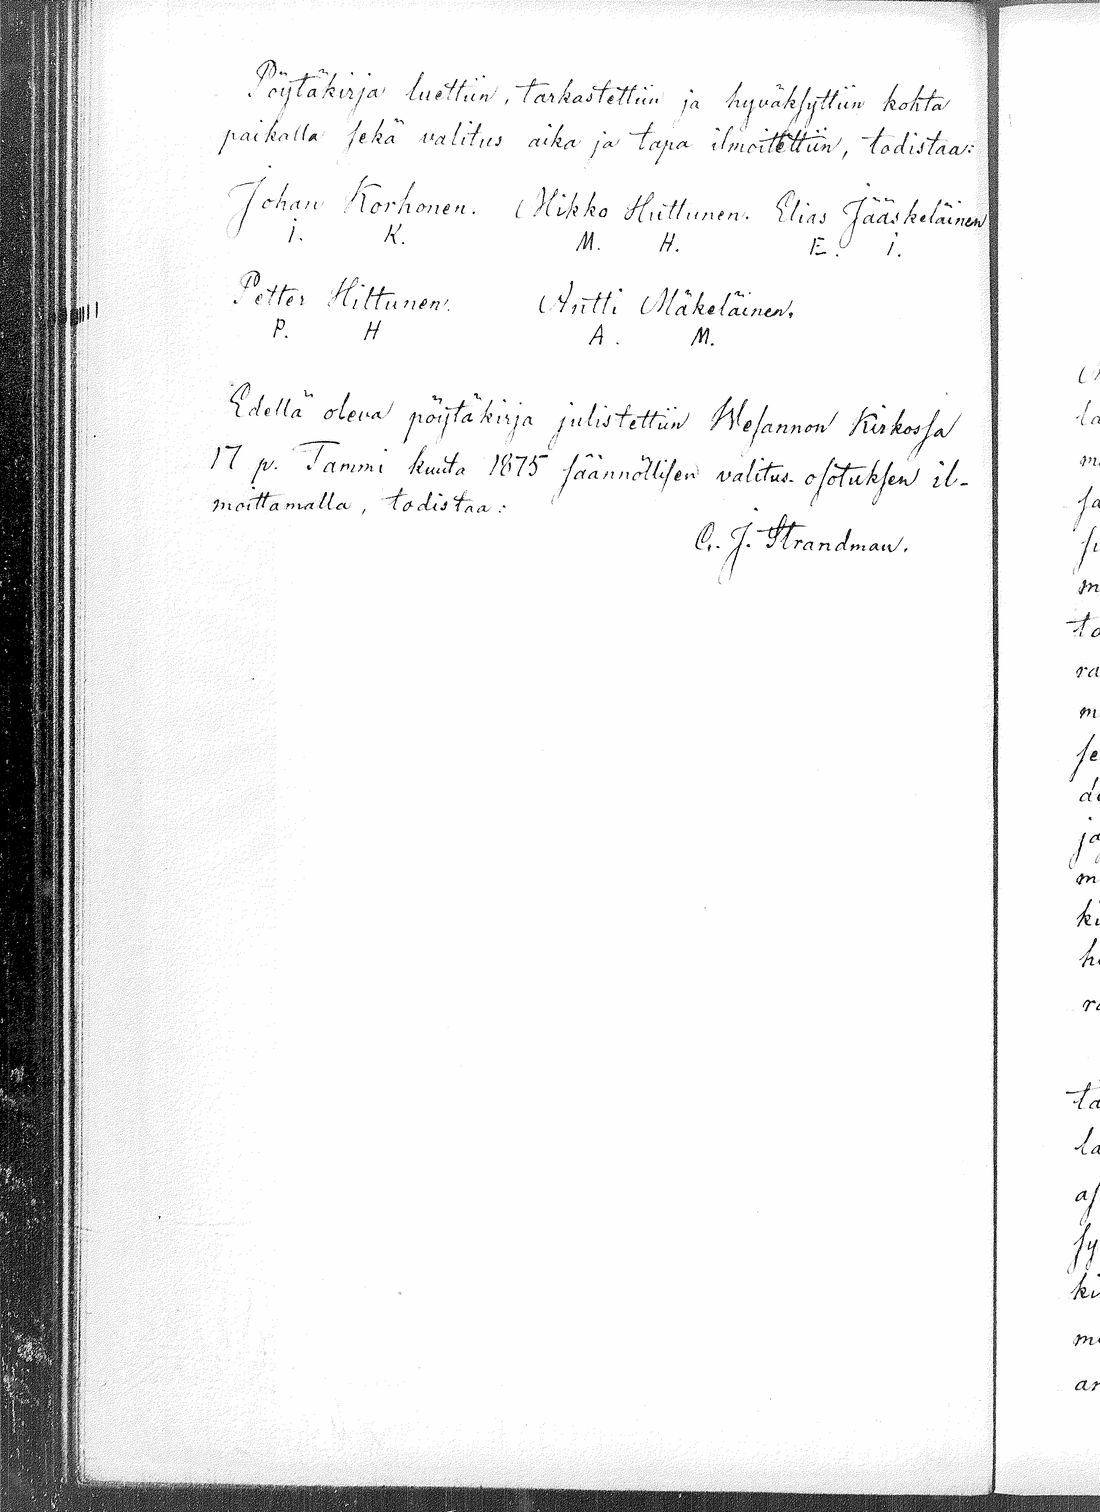 Pöytäkirja luettiin, tarkastettiin ja hyväksyttiin kohta
paikalla sekä valitus aika ja tapa ilmoitettiin, todistaa:
Johan Korhonen. Mikko Huttunen. Elias Jääskeläinen
I. K. M. H. E. I.
Petter Hittunen. Antti Mäkeläinen.
P. H A. M.
Edellä oleva pöytäkirja julistettiin Wesannon Kirkossa
17 p. Tammi kuuta 1875 säännöllisen valitus-osotuksen il-
moittamalla, todistaa:
C. J. Strandman.